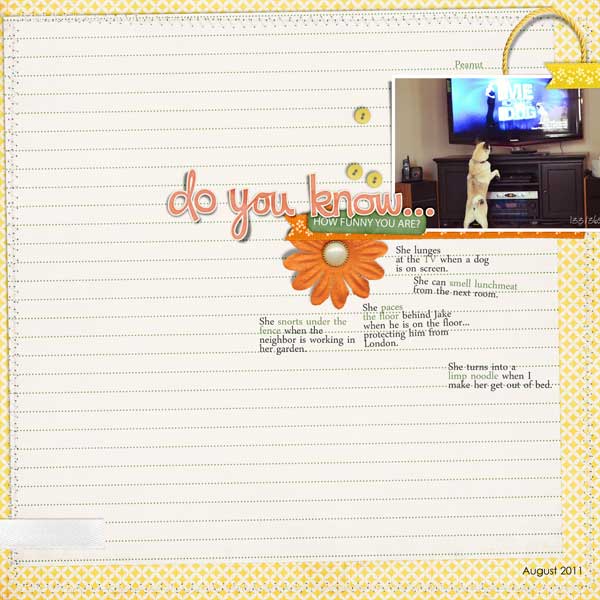 Peanut
ME
DOG
do you know...
HOW FUNNY YOU ARE?
She lunges
at the TV when a dog
is on screen.
She can smell lunchmeat
from the next room.
She paces
the floor behind Jake
when he is on the floor...
protecting him from
London.
She snorts under the
fence when the
neighbor is working in
her garden.
She turns into a
limp noodle when I
make her get out of bed.
August 2011